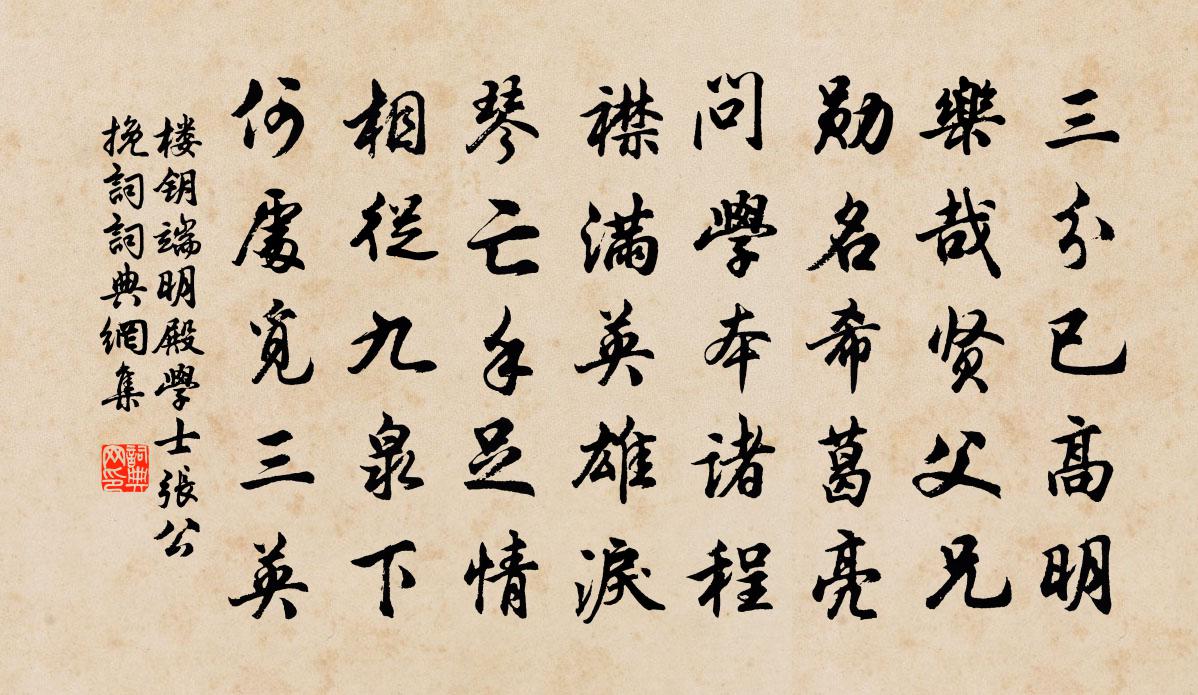 三分已高明
樂哉贤父兄
勋名希葛亮
問學本诸程
襟满英雄淚
琴亡手足情
相從九泉下
何處覓三英
楼钥端明殿學士張公
挽詞詞典網集
詞典
网印